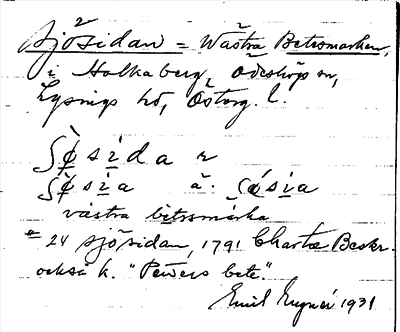 Sjösidan = Västra Betesmarken,
i Holkaberg, Ödeshögs sn,
Lysings hd, Östorg. l.
ʃø̀sida r
ʃø̀sia å.
västra bitesmárka
* 24 sjösidan, 1791 Charta Beskr.
också k. "Pewers bete".
Emil 1931